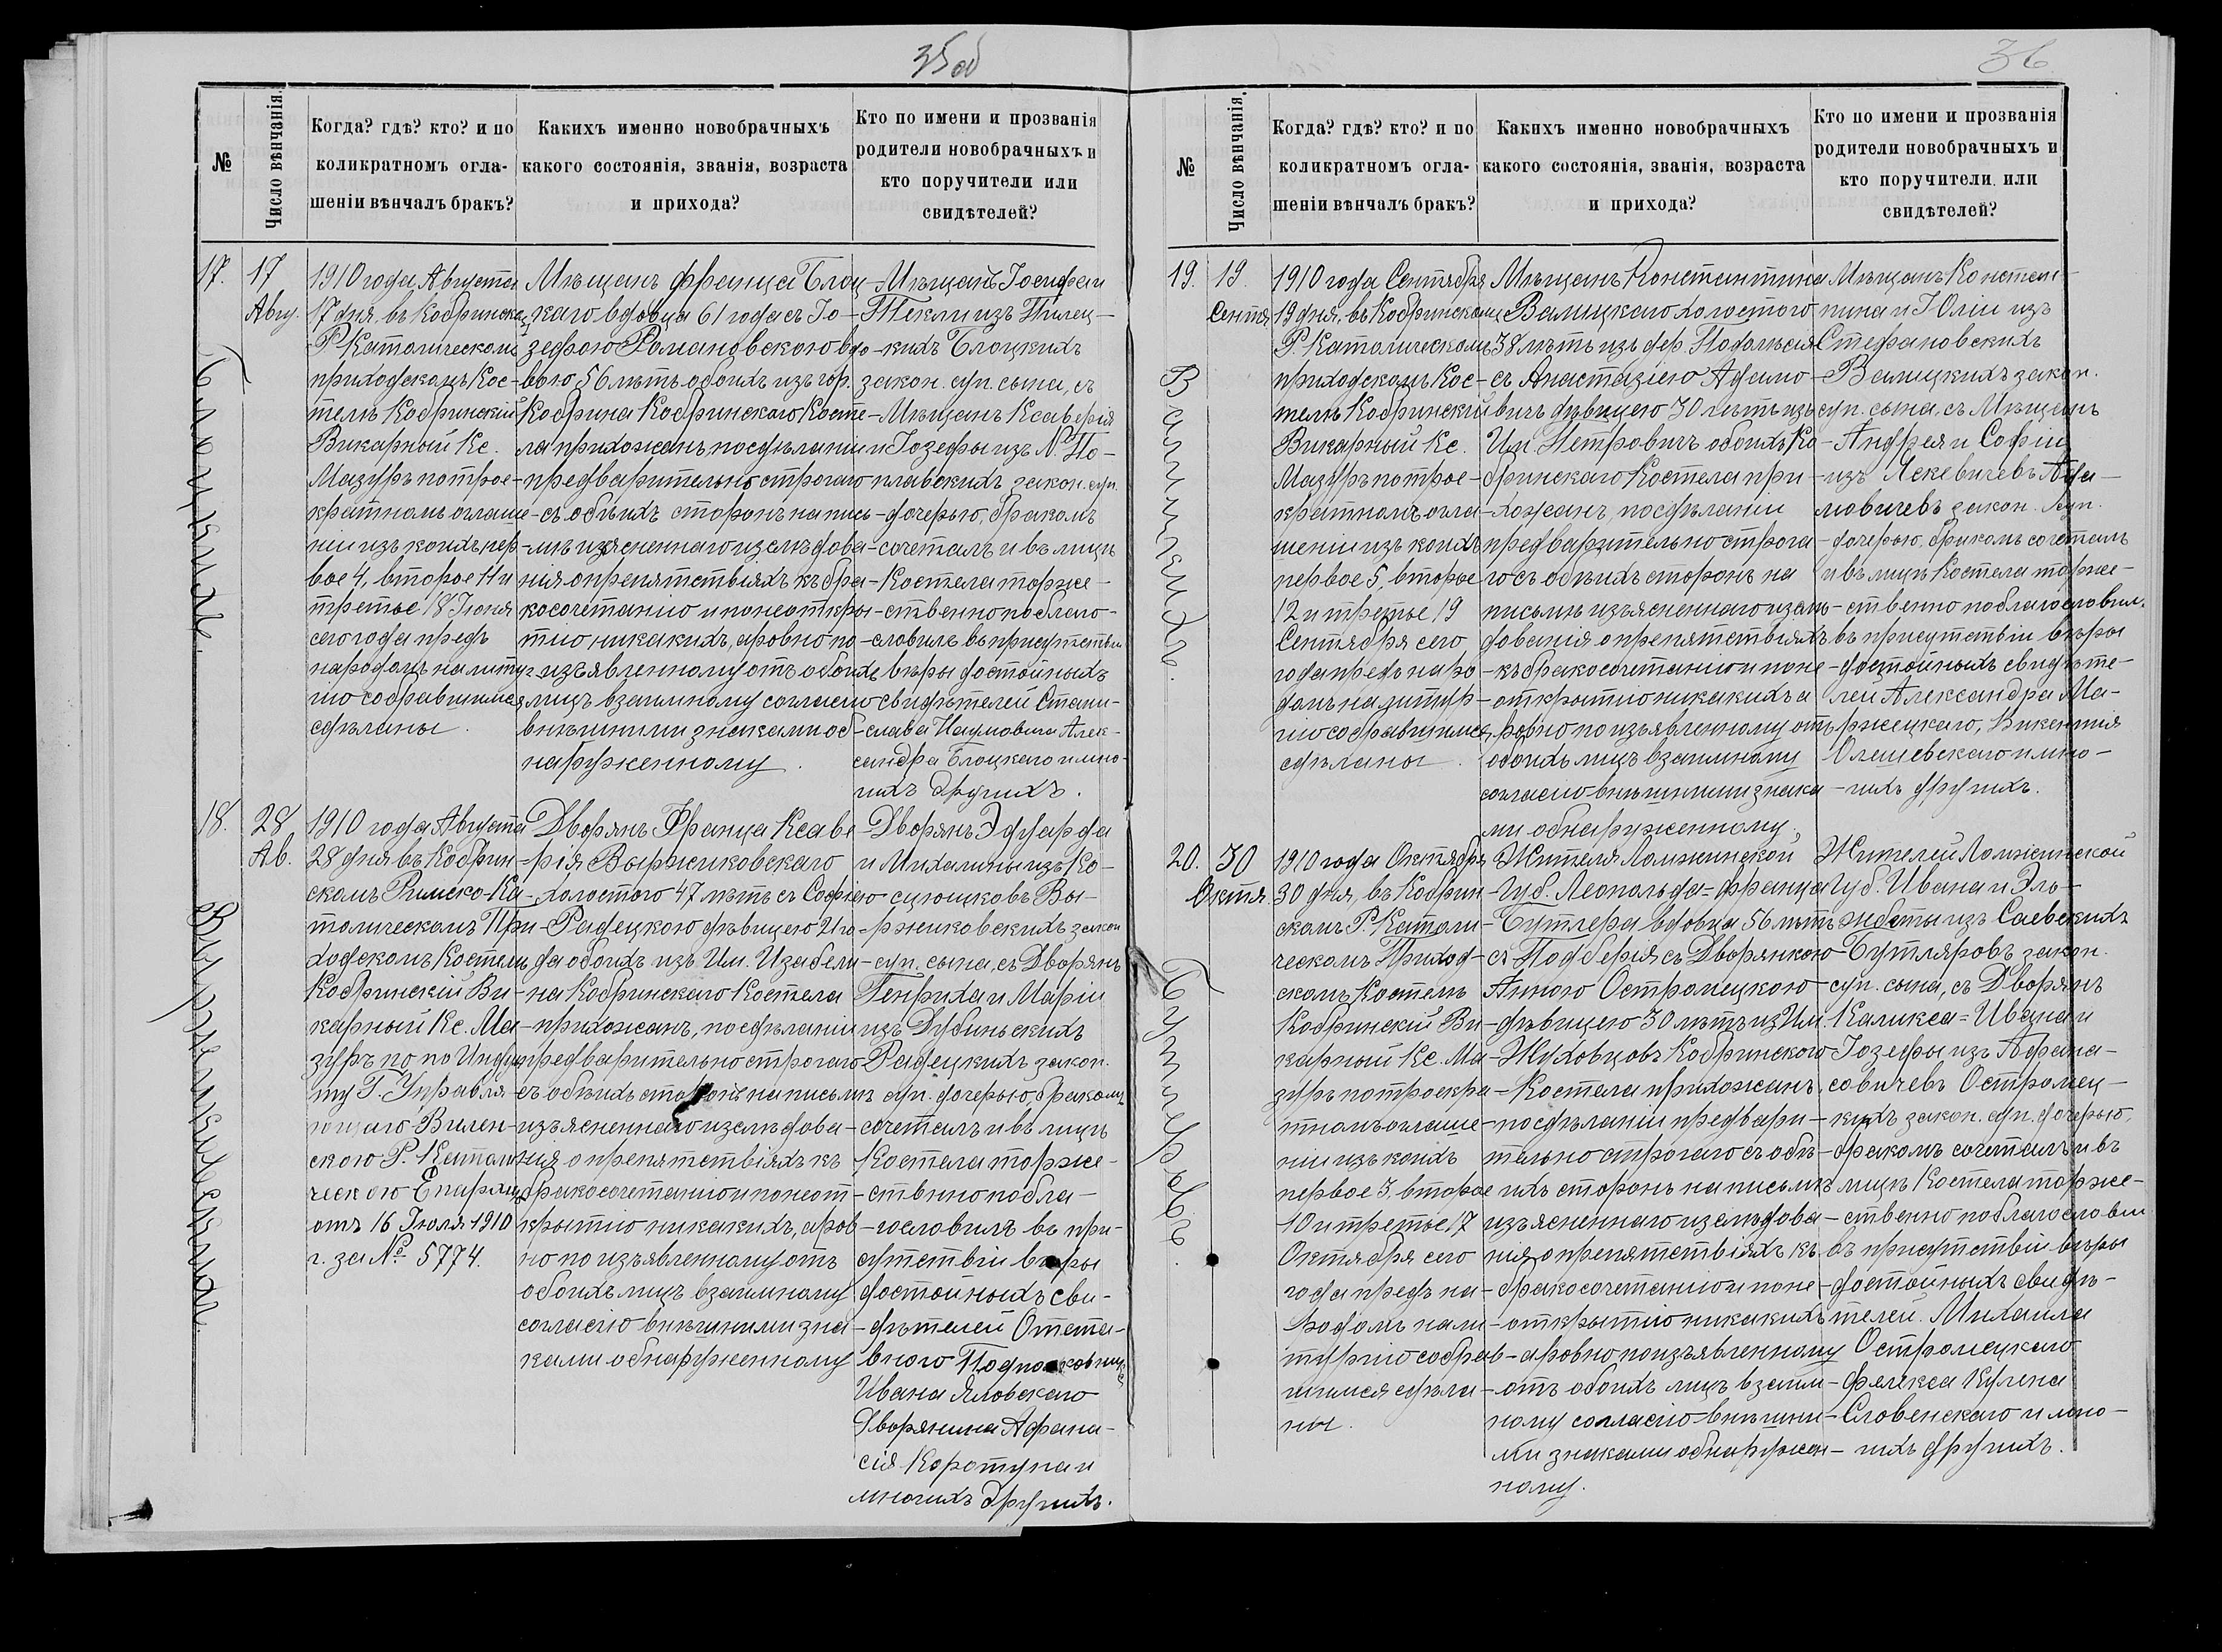 35об
№
Число вѣнчанія.
Когда? гдѣ? кто? и по
коликратномъ огла-
шеніи вѣнчалъ бракъ?
Какихъ именно новобрачныхъ
какого состоянія, званія, возраста
и прихода?
Кто по имени и прозванія
родители новобрачныхъ и
кто поручители или
свидѣтелей?
17.
17
Авгу.
Блоцкихъ.
1910 года Августа
17 дня, въ Кобринском
Р. Католическомъ
приходскомъ Кос-
телѣ Кобринскій
Викарный Кс.
Мазуръ по трое-
кратномъ оглаше-
нии изъ коихъ пер-
вое 4, второе 11 и
третье 18 Іюня
сего года предъ
народомъ на литур-
гію собравшимся
сдѣланы.
Мѣщанъ Франца Блоц-
каго вдовца 61 года съ Іо-
зефою Романовскою вдо-
вою 56 лѣтъ обоихъ изъ гор.
Кобрина Кобринскаго Косте-
ла прихожанъ, по сдѣлании
предварительно строгаго
съ обѣихъ сторонъ на пись-
мѣ изясненнаго изслѣдова-
нія о препятствіяхъ къ бра-
косочетанію и по неоткры-
тію никакихъ, а ровно по
изъявленному отъ обоихъ
лицъ взаимному согласію
внѣшними знаками об-
наруженному.
Мѣщанъ Іосифа и
Текли изъ Пилец-
кихъ Блоцкихъ
закон. суп. сына, съ
Мѣщанъ Ксаверія
и Іозефы изъ N. По-
плавскихъ закон. суп.
дочерью, бракомъ
сочеталъ и въ лицѣ
Костела торже-
ственно поблаго-
словилъ въ присутствіи
вѣры достойныхъ
свидѣтелей Стани-
слава Наумовича Алек-
сандра Блоцкаго и мно-
гихъ другихъ.
18.
28
Ав.
Выржиковскихъ.
1910 года Августа
28 дня въ Кобрин-
скомъ Римско-Ка-
толическомъ При-
ходскомъ Костелѣ
Кобринскій Ви-
карный Кс. Ма-
зуръ по по Индул
ту Г. Управля-
ющаго Вилен-
скою Р. Католи
ческою Епархіею
отъ 16 Іюля 1910
г. за № 5774.
Дворянъ Франца Ксаве-
рія Выржиковскаго
холостого 47 лѣтъ съ Софіею
Радецкою дѣвицею 21 го-
да обоихъ изъ Им. Изабели-
на Кобринскаго Костела
прихожанъ, по сдѣланіи
предварительно строгаго
съ обѣихъ сторонъ на письмѣ
изъясненнаго изслѣдова-
нія о препятствіяхъ къ
бракосочетанію и по неот-
крытію никакихъ, а ров-
но по изъявленному отъ
обоихъ лицъ взаимному
согласію внѣшними зна-
ками обнаруженному
Дворянъ Эдуарда
и Михалины изъ Ко-
сцюшковъ Вы-
ржиковскихъ закон
суп. сына, съ Дворянъ
Генриха и Маріи
изъ Дубиньскихъ
Радецкихъ закон.
суп. дочерью, бракомъ
сочеталъ и въ лицѣ
Костела торже-
ственно побла-
гословилъ въ при-
сутствіи вѣры
достойныхъ сви-
дѣтелей Отста-
вного Подполковника
Ивана Яловскаго
Дворянина Афана-
сія Коротуна и
многихъ другихъ.
36
№
Число вѣнчанія.
Когда? гдѣ? кто? и по
коликратномъ огла-
шеніи вѣнчалъ бракъ?
Какихъ именно новобрачныхъ
какого состоянія, званія, возраста
и прихода?
Кто по имени и прозванія
родители новобрачныхъ и
кто поручители или
свидѣтелей?
19.
19.
Сентя
Валицкихъ.
1910 года Сентября
19 дня, въ Кобринскомъ
Р. Католическомъ
приходскомъ Кос-
телѣ Кобринскій
Викарный Кс.
Мазуръ по трое-
кратномъ огла-
шеніи изъ коихъ
первое 5, второе
12 и третье 19
Сентября сего
года предъ наро-
домъ на литур-
гію собравшимся
сдѣланы.
Мѣщанъ Константина
Валицкаго холостого
38 лѣтъ изъ дер. Подлѣсія
съ Анастазіею Адамо-
вичъ дѣвицею 30 лѣтъ изъ
Им. Петровичъ обоихъ Ко-
бринскаго Костела при-
хожанъ, по сдѣланіи
предварительно строга-
го съ обѣихъ сторонъ на
письмѣ изъясненнаго изслѣ-
дованія о препятствіяхъ
къ бракосочетанію и по не-
открытію никакихъ а
ровно по изъявленному отъ
обоихъ лицъ взаимному
согласію внѣшними знака-
ми обнаруженному.
Мѣщанъ Констан-
тина и Юліи изъ
Стефановскихъ
Валицкихъ закон.
суп. сына, съ Мѣщанъ
Андрея и Софіи
изъ Лскевичевъ Ада-
мовичевъ закон. суп.
дочерью, бракомъ сочеталъ
и въ лицѣ Костела торже-
ственно поблагословил.
въ присутствіи вѣры
достойныхъ свидѣте-
лей Александра Ма-
ржецкаго, Викентія
Олешевскаго и мно-
гихъ другихъ.
20.
30
Октя.
Бутлеровъ.
1910 года Октября
30 дня, въ Кобрин-
скомъ Р. Католи-
ческомъ Приход-
скомъ Костелѣ
Кобринскій Ви-
карный Кс. Ма-
зуръ по троекра-
тномъ оглаше-
ніи изъ коихъ
первое 3, второе
10 и третье 17
Октября сего
года предъ на-
родомъ на ли-
тургію собрав-
шимся сдѣла-
ны.
Жителя Ломжинской
Губ. Леопольда-Франца
Бутлера вдовца 56 лѣтъ
съ Подберія съ Дворянкою
Анною Остромецкою
дѣвицею 30 лѣтъ из Им.
Жуховцовъ Кобринского
Костела прихожанъ,
по сдѣланіи предвари-
тельно строгаго съ обѣ-
ихъ сторонъ на письмѣ
изъясненнаго изслѣдова-
нія о препятствіяхъ къ
бракосочетанію и по не-
открытію никакихъ
а ровно по изъявленному
отъ обоихъ лицъ взаим-
ному согласію внѣшни-
ми знаками обнаружен-
ному.
Жителей Ломжинской
Губ. Ивана и Эль-
жбеты изъ Саевскихъ
Бутляровъ закон.
суп. сына, съ Дворянъ
Каликса-Ивана и
Іозефы изъ Афана-
совичевъ Остромец-
кихъ закон. суп. дочерью,
бракомъ сочеталъ и въ
лицѣ Костела торже-
ственно поблагослови
въ присутствіи вѣры
достойныхъ свидѣ-
телей. Михаила
Остромецкаго
Феликса Кулена
Словенскаго и мно-
гихъ другихъ.